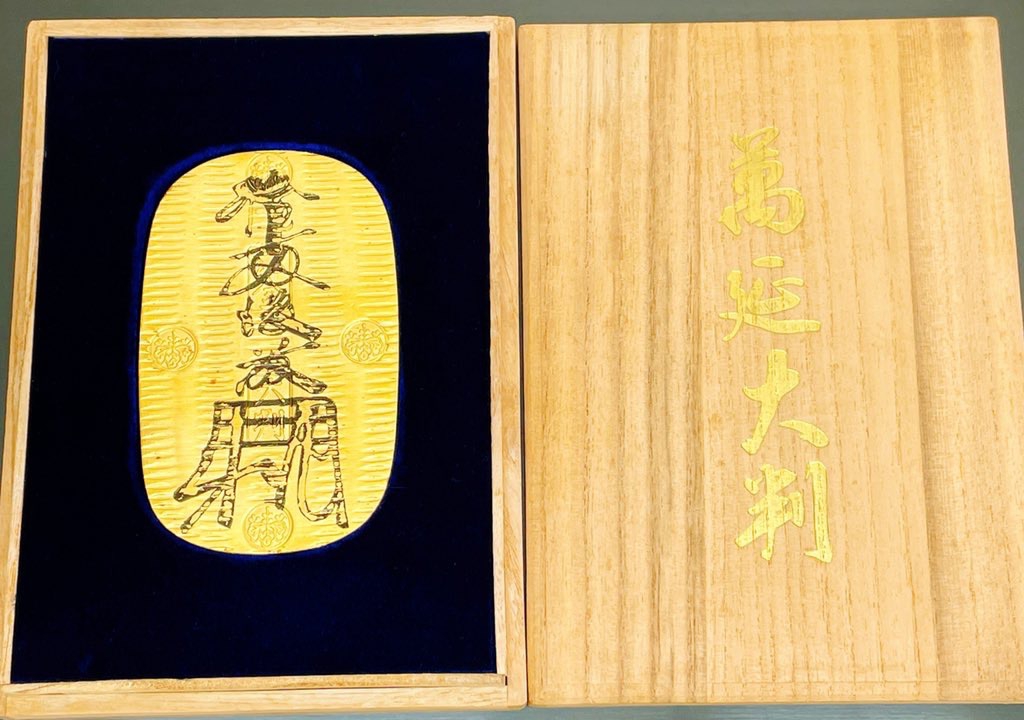 拾両後藤
萬延大判